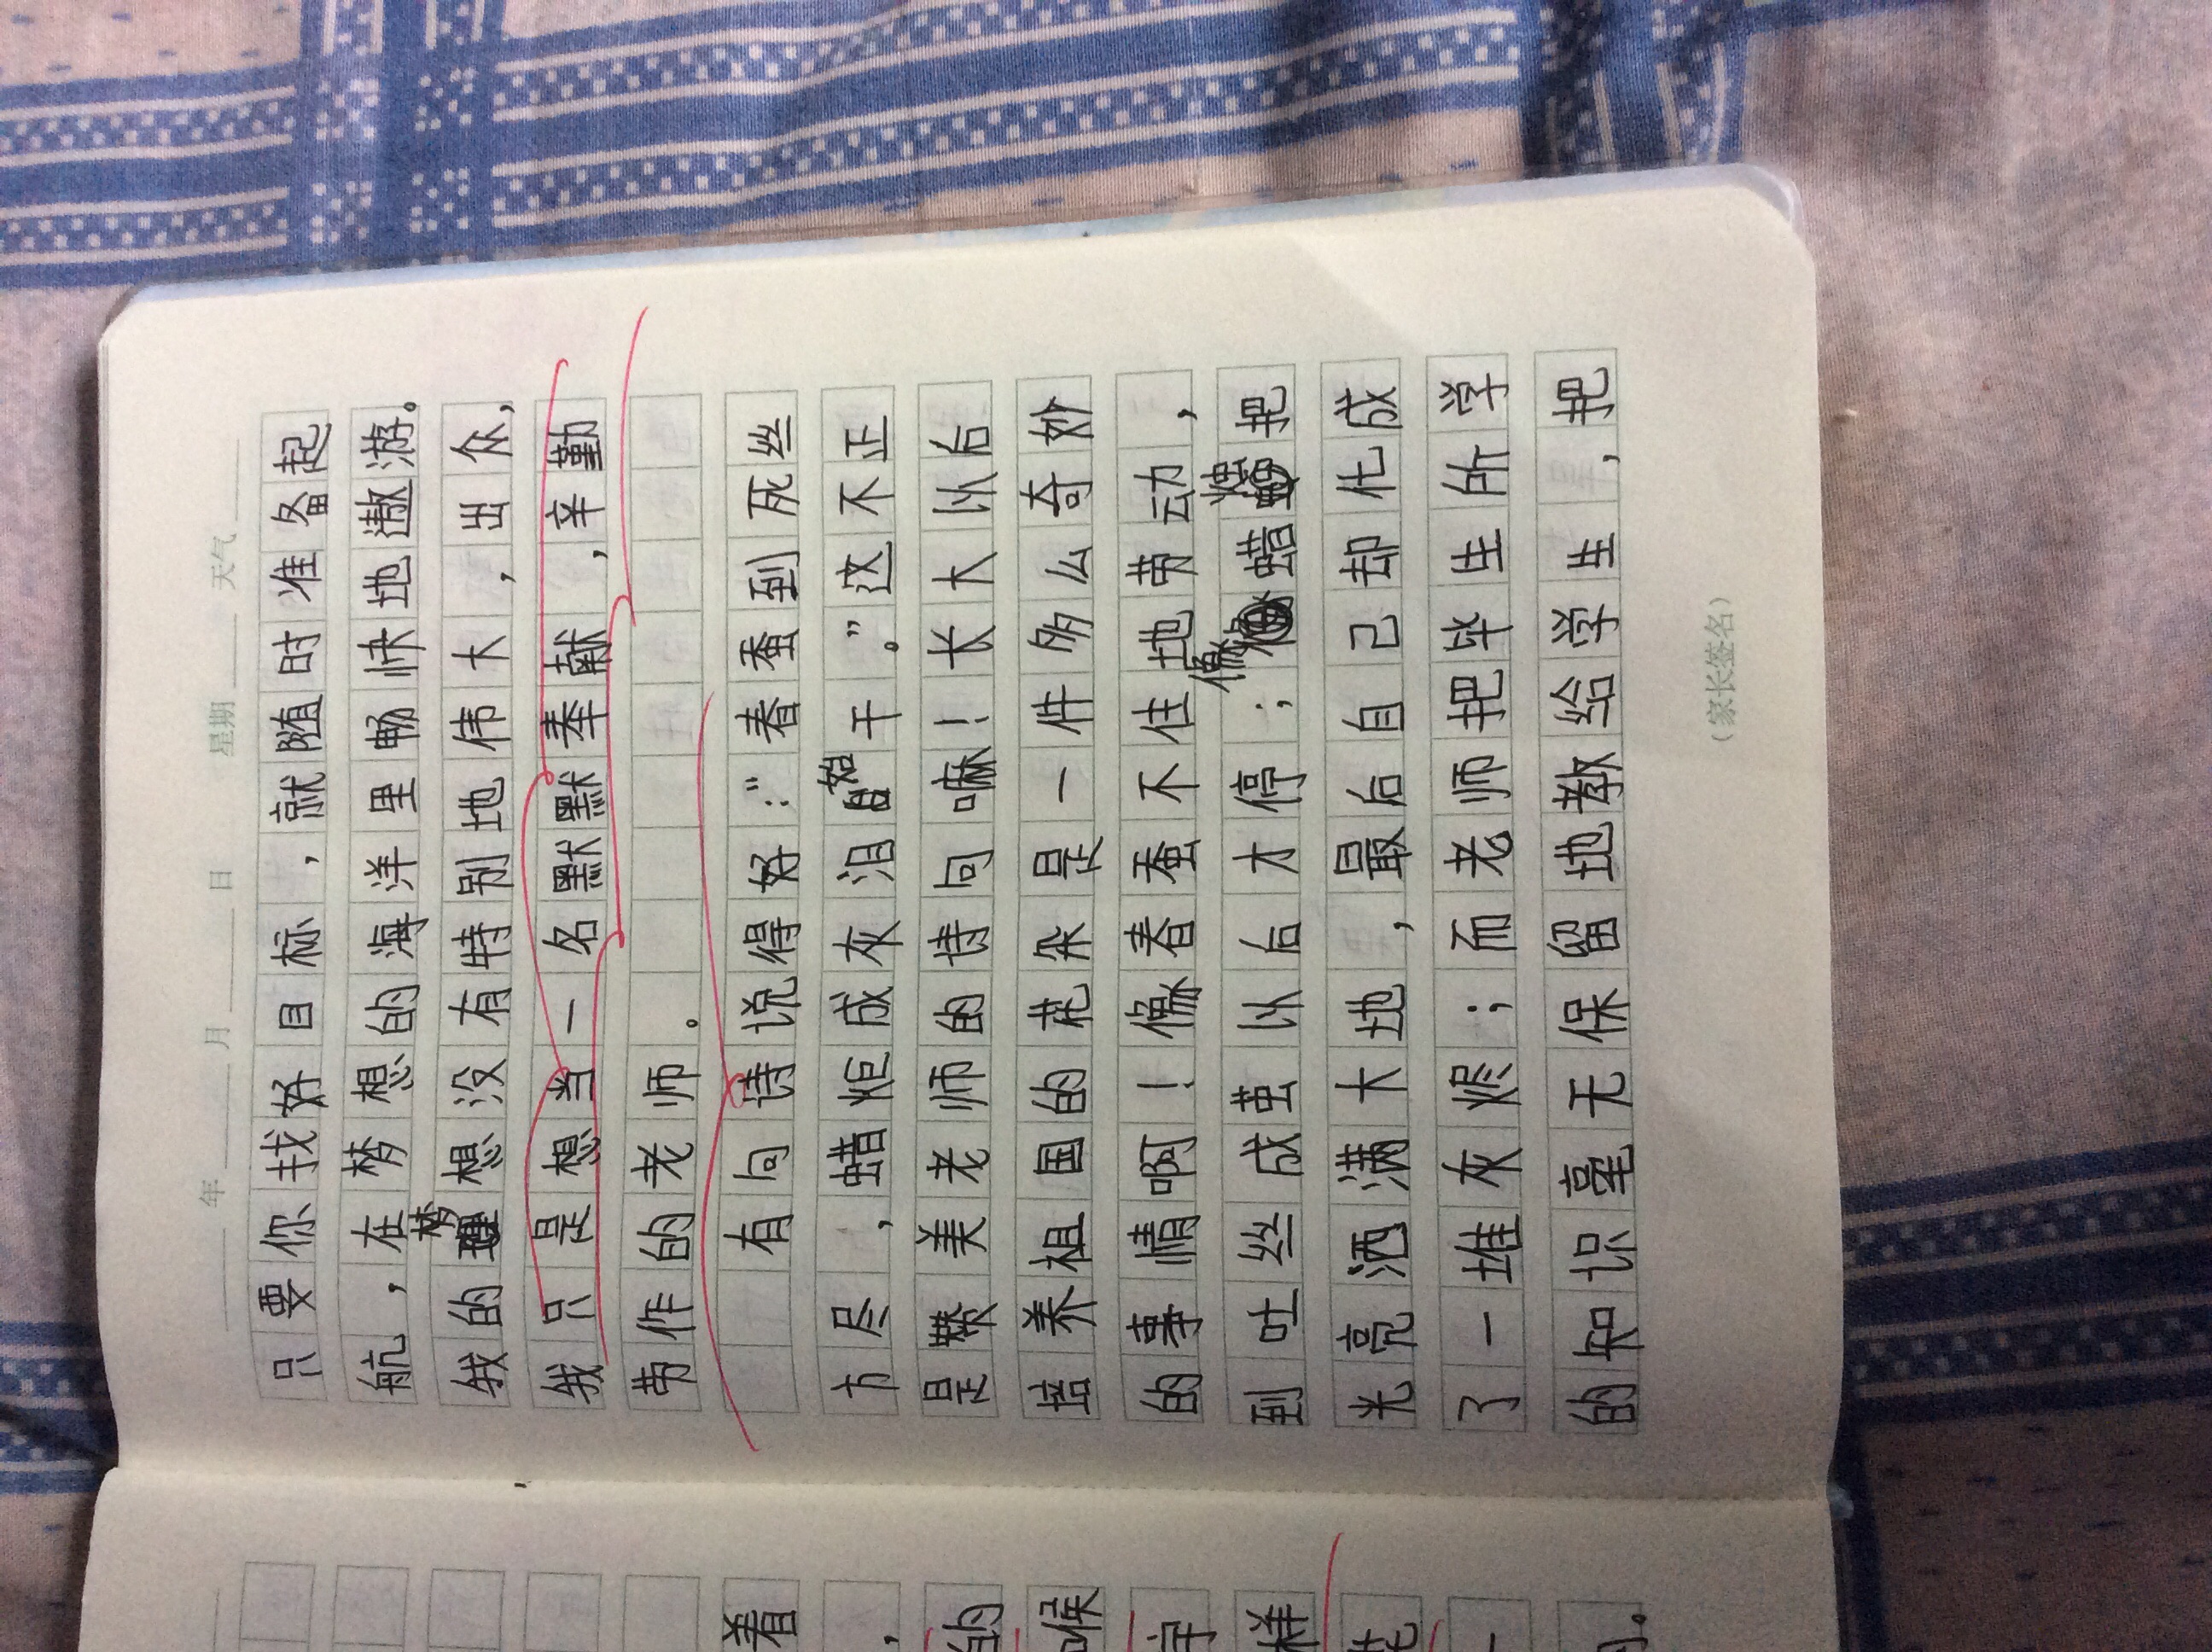 年 月 日 星期 天气
只要你找好目标，就随时准备起
航，在梦想的海洋里畅快地遨游。
我的梦想没有特别地伟大，出众，
我只是想当一名默默奉献，辛勤
带作的老师。
有句诗说得好：“春蚕到死丝
方尽，蜡炬成灰泪始干。”这不正
是赞美老师的诗句嘛！长大以后
培养祖国的花朵是一件多么奇妙
的事情啊！像春蚕不住地带动，
到吐丝成茧以后才停；像蜡烛把
光亮洒满大地，最后自己却化成
了一堆灰烬；而老师把毕生所学
的知识毫无保留地教给学生，把
（家长签名）
着
，
的
候
字
样